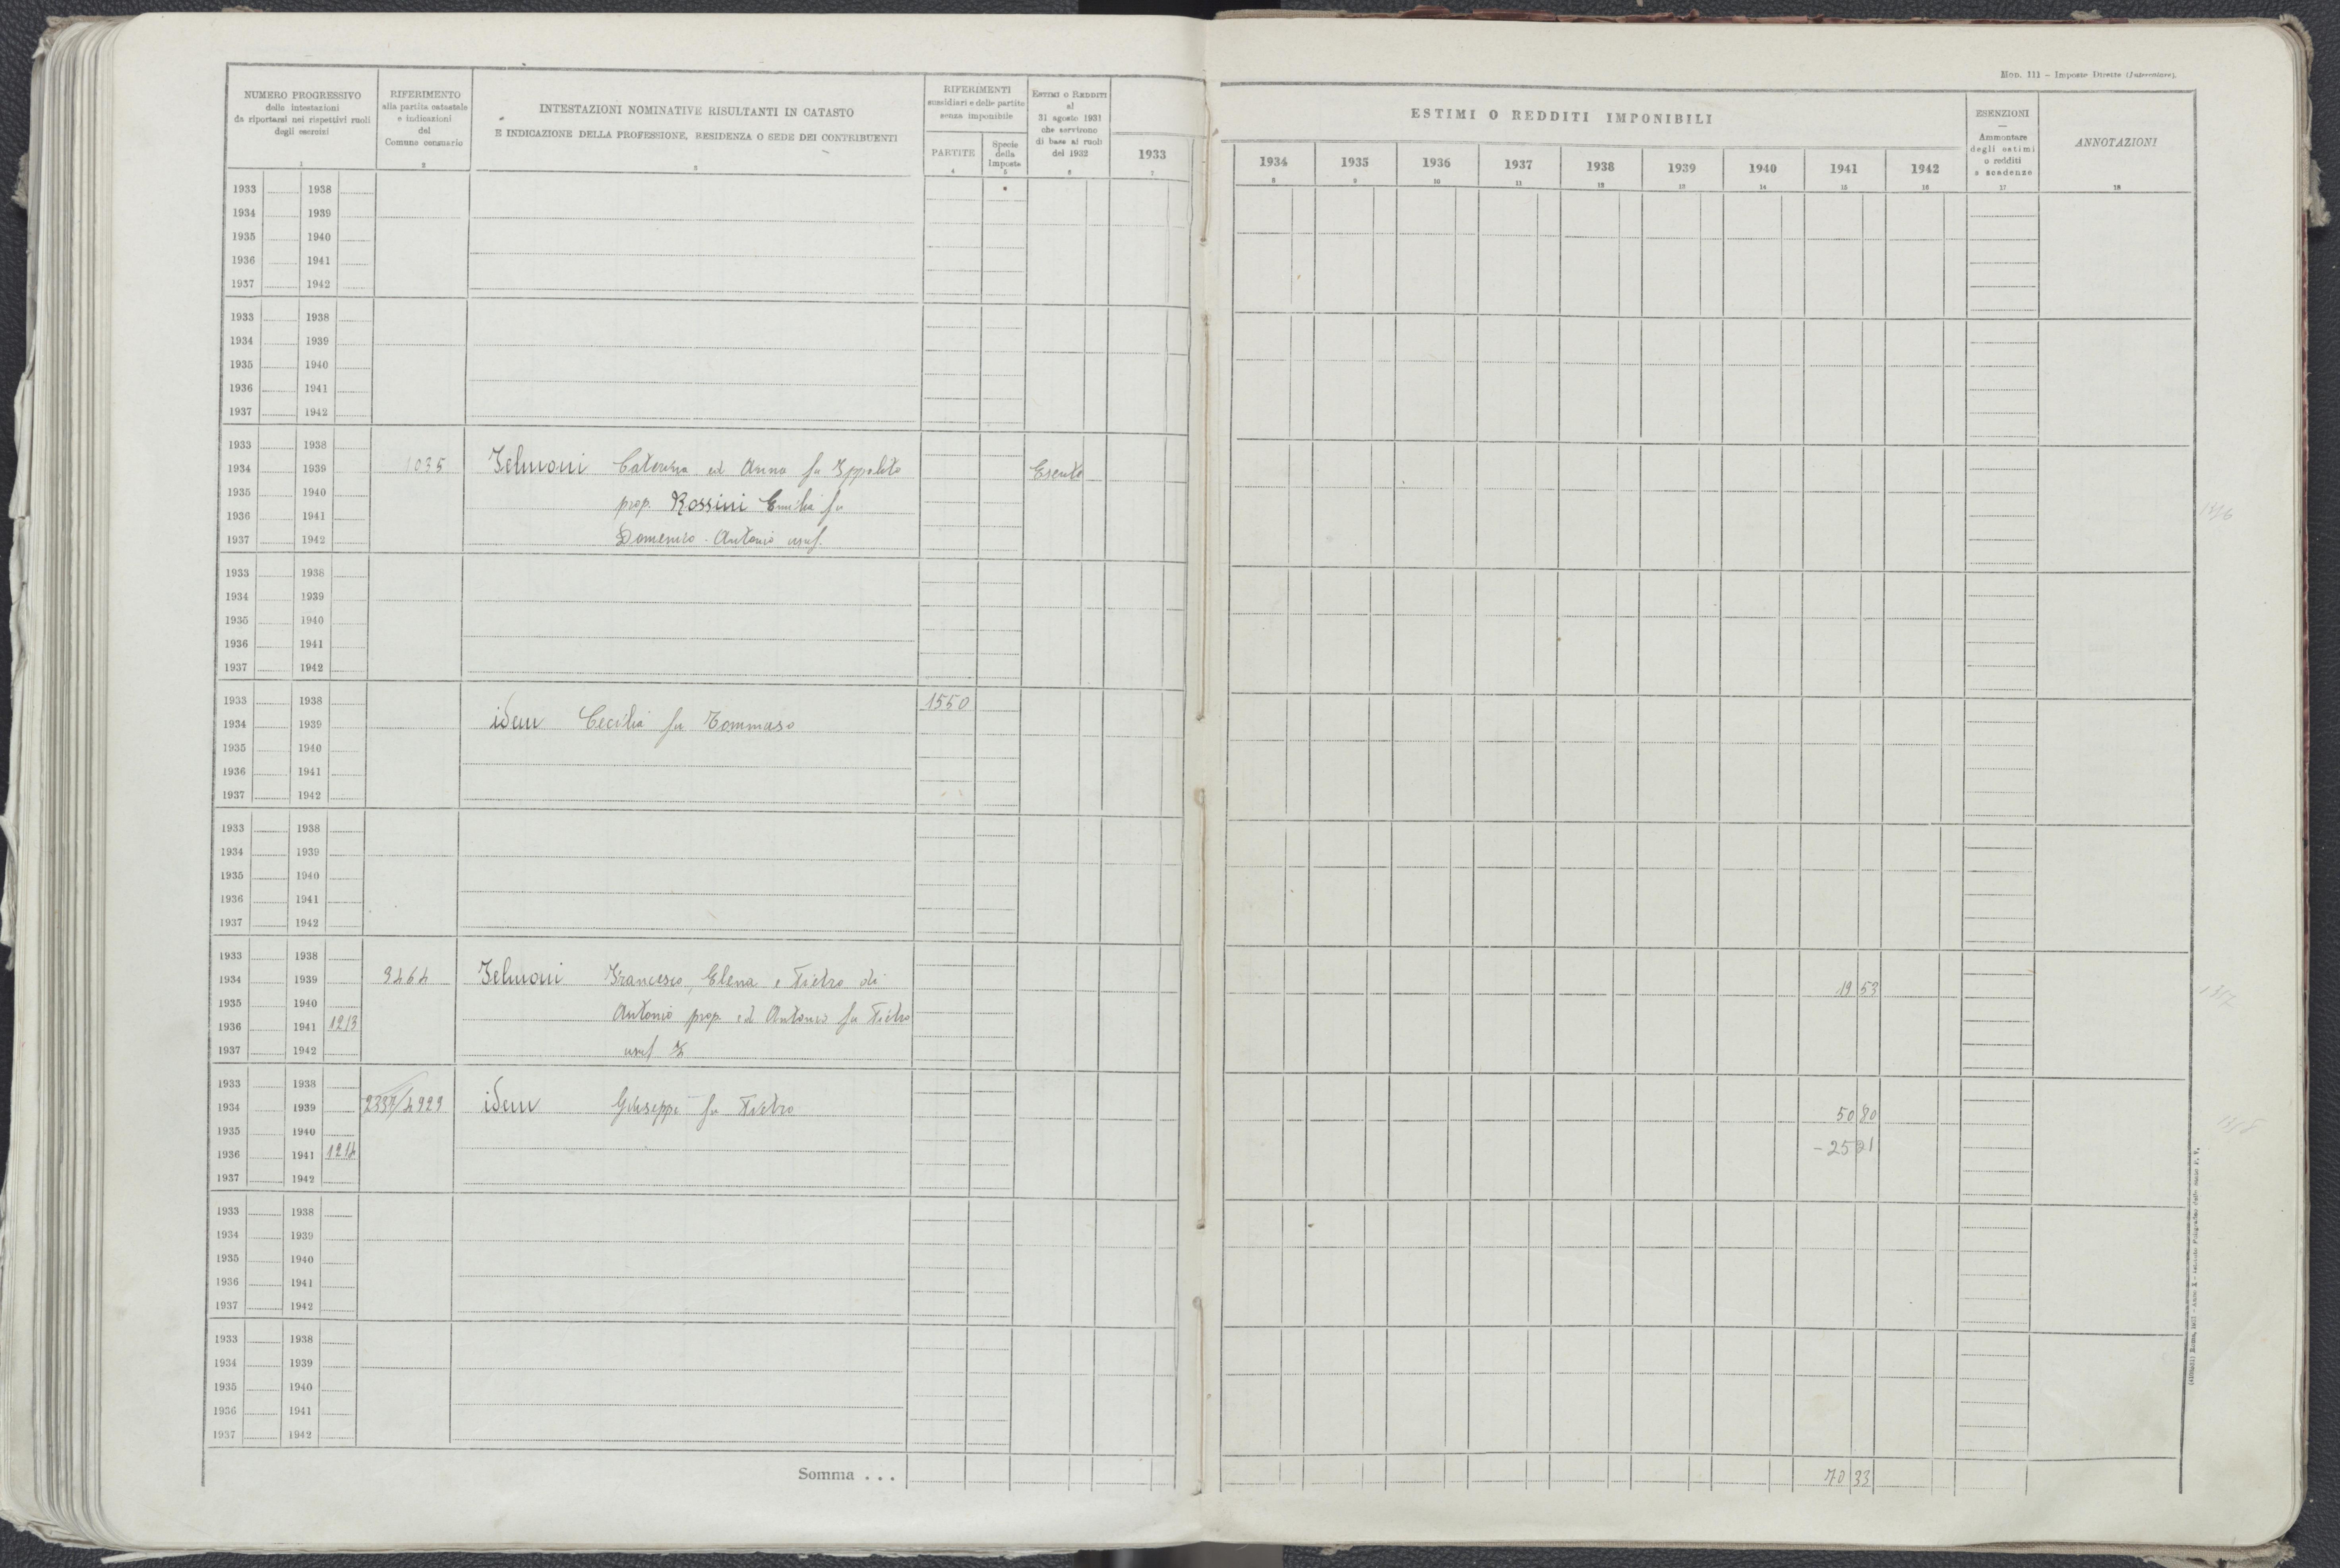 Mon. 111 – Imposte Dirette (Intercalare).
NUMERO PROGRESSIVO
delle intestazioni
da riportarsi nei rispettivi ruoli
degli esercizi
1
RIFERIMENTO
alla partita catastale
e indicazioni
del
Comune censuario
2
INTESTAZIONI NOMINATIVE RISULTANTI IN CATASTO
E INDICAZIONE DELLA PROFESSIONE, RESIDENZA O SEDE DEI CONTRIBUENTI
3
RIFERIMENTI
sussidiari e delle partite
senza imponibile
PARTITE
4
Specie
della
Imposta
5
ESTIMI O REDDITI
al
31 agosto 1931
che servirono
di base ai ruoli
del 1932
6
1933
7
ESTIMI O REDDITI IMPONIBILI
1934 1935 1936 1937 1938 1939 1940 1941 1942
8 9 10 11 12 13 14 15 16
ESENZIONI
—
Ammontare
degli estimi
o redditi
e scadenze
17
ANNOTAZIONI
18
1933 1938
1934 1939
1935 1940
1936 1941
1937 1942
1933 1938
1934 1939
1935 1940
1936 1941
1937 1942
1933 1938
1934 1939 1035 Zelmoni Caterina ed Anna fu Ippolito Esente
1935 1940 prop. Rossini Emilia fu
1936 1941
1937 1942 Domenico - Antonio usuf.
1933 1938
1934 1939
1935 1940
1936 1941
1937 1942
1933 1938 1550
1934 1939 idem Cecilia fu Tommaso
1935 1940
1936 1941
1937 1942
1933 1938
1934 1939
1935 1940
1936 1941
1937 1942
1933 1938
1934 1939 3464 Zelmoni Francesco, Elena e Pietro di 19 53
1935 1940
1936 1941 1213 Antonio prop. ed Antonio fu Pietro
1937 1942 usuf
1933 1938
1934 1939 2337/4929 idem Giuseppe fu Pietro 50 80
1935 1940
1936 1941 1214 - 25 21
1937 1942
1933 1938
1934 1939
1935 1940
1936 1941
1937 1942
1933 1938
1934 1939
1935 1940
1936 1941
1937 1942
Somma . . . 70 33